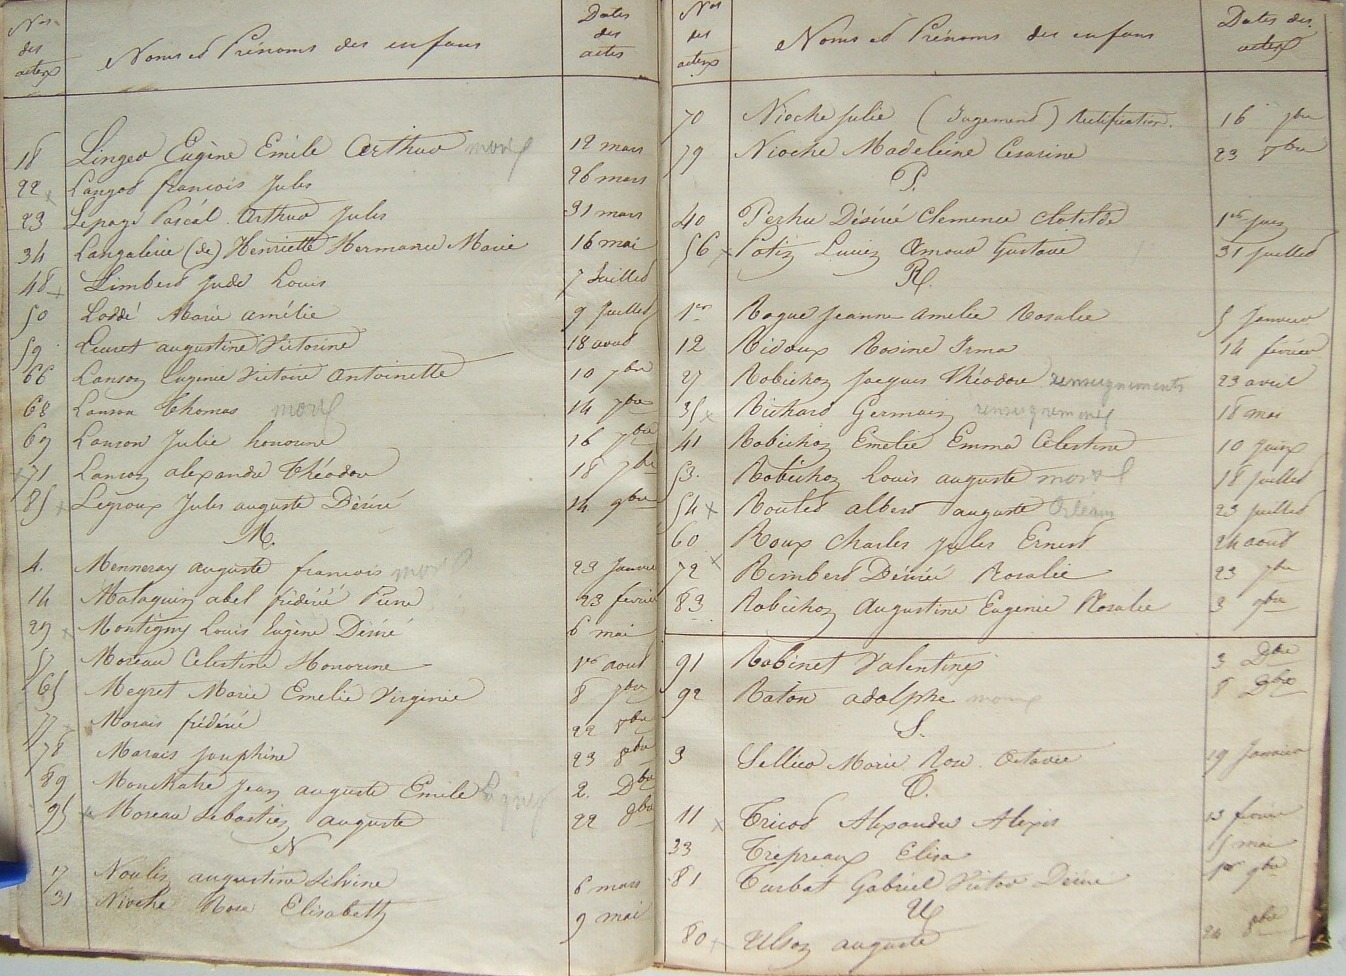 Nos des actes
Noms et Prénoms des enfans
Dates des actes
18 Linger Eugène Emile Arthur mort 12 mars
22 x Langot francois Jules 26 mars
23 Lepage Pascal Arthur Jules 31 mars
34 Langalerie (de) Henriette Hermance Marie 16 mai
48 x Limbert Jude Louis 7 Juillet
50 Loddé Marie amélie 9 Juillet
59 augustine Victorine 18 aout
66 Lanson Eugenie Victoire antoinette 10 7bre
68 Lanson Thomas mort 14 7bre
69 Lanson Julie honorine 16 7bre
x 71 Lanson alexandre théodore 18 7bre
85 x Legroux Jules auguste Désiré 14 9bre
M.
4. Menneray auguste francois mort 23 Janvier
14 Malaquin abel frédéric Pierre 23 fevrier
29 x Montigny Louis Eugène Désiré 6 mai
57 Moreau Celestine Honorine 1er aout
65 Megret Marie Emelie Virginie 8 7bre
77 x Marais frédéric 22 8bre
78 Marais josephine 23 8bre
89 Jean auguste Emile 2. Dbre
95 x Moreau Sebastien auguste 22
N
17 Noulin augustine Silvine 6 mars
31 Nioche Rose Elisabeth 9 mai
Nos des actes
Noms et Prénoms des enfans
Dates des actes
70 Nioche Julie (Jugement) Rectification. 16 7bre
79 Nioche Madeleine Cesarine 23 8bre
P.
40 Désiré Clemence Clotilde 1er juin
56 x Potin Lucien Gustave 31 juillet
R.
1er Rogue Jeanne Amelie Rosalie 5 Janvier
12 Ridoux Rosine Irma 14 février
27 Robichon Jacques Théodore renseignements 23 avril
35 x Richard Germain renseignement 18 mai
41 Robichon Emelie Emma Celestine 10 Juin
53. Robichon Louis auguste mort 18 juillet
54 x Routet albert auguste Orléans 23 juillet
60 Roux Charles Jules Ernest 24 aout
72 x Rimbert Désirée Rosalie 23 7bre
83 Robichon Augustine Eugenie Rosalie 3 9bre
91 Robinet Valentin 3 Dbre
92 Raton adolphe 8 Dbre
S.
3 Sellier Marie Rose Octavie 19 Janvier
T.
11 x Tricot Alexandre Alexis 13 fevrier
33 Trepreaux Elisa 15 mai
81 Turbat Gabriel Victor Désiré 1er 9bre
U
80 x Ulson auguste 24 8bre